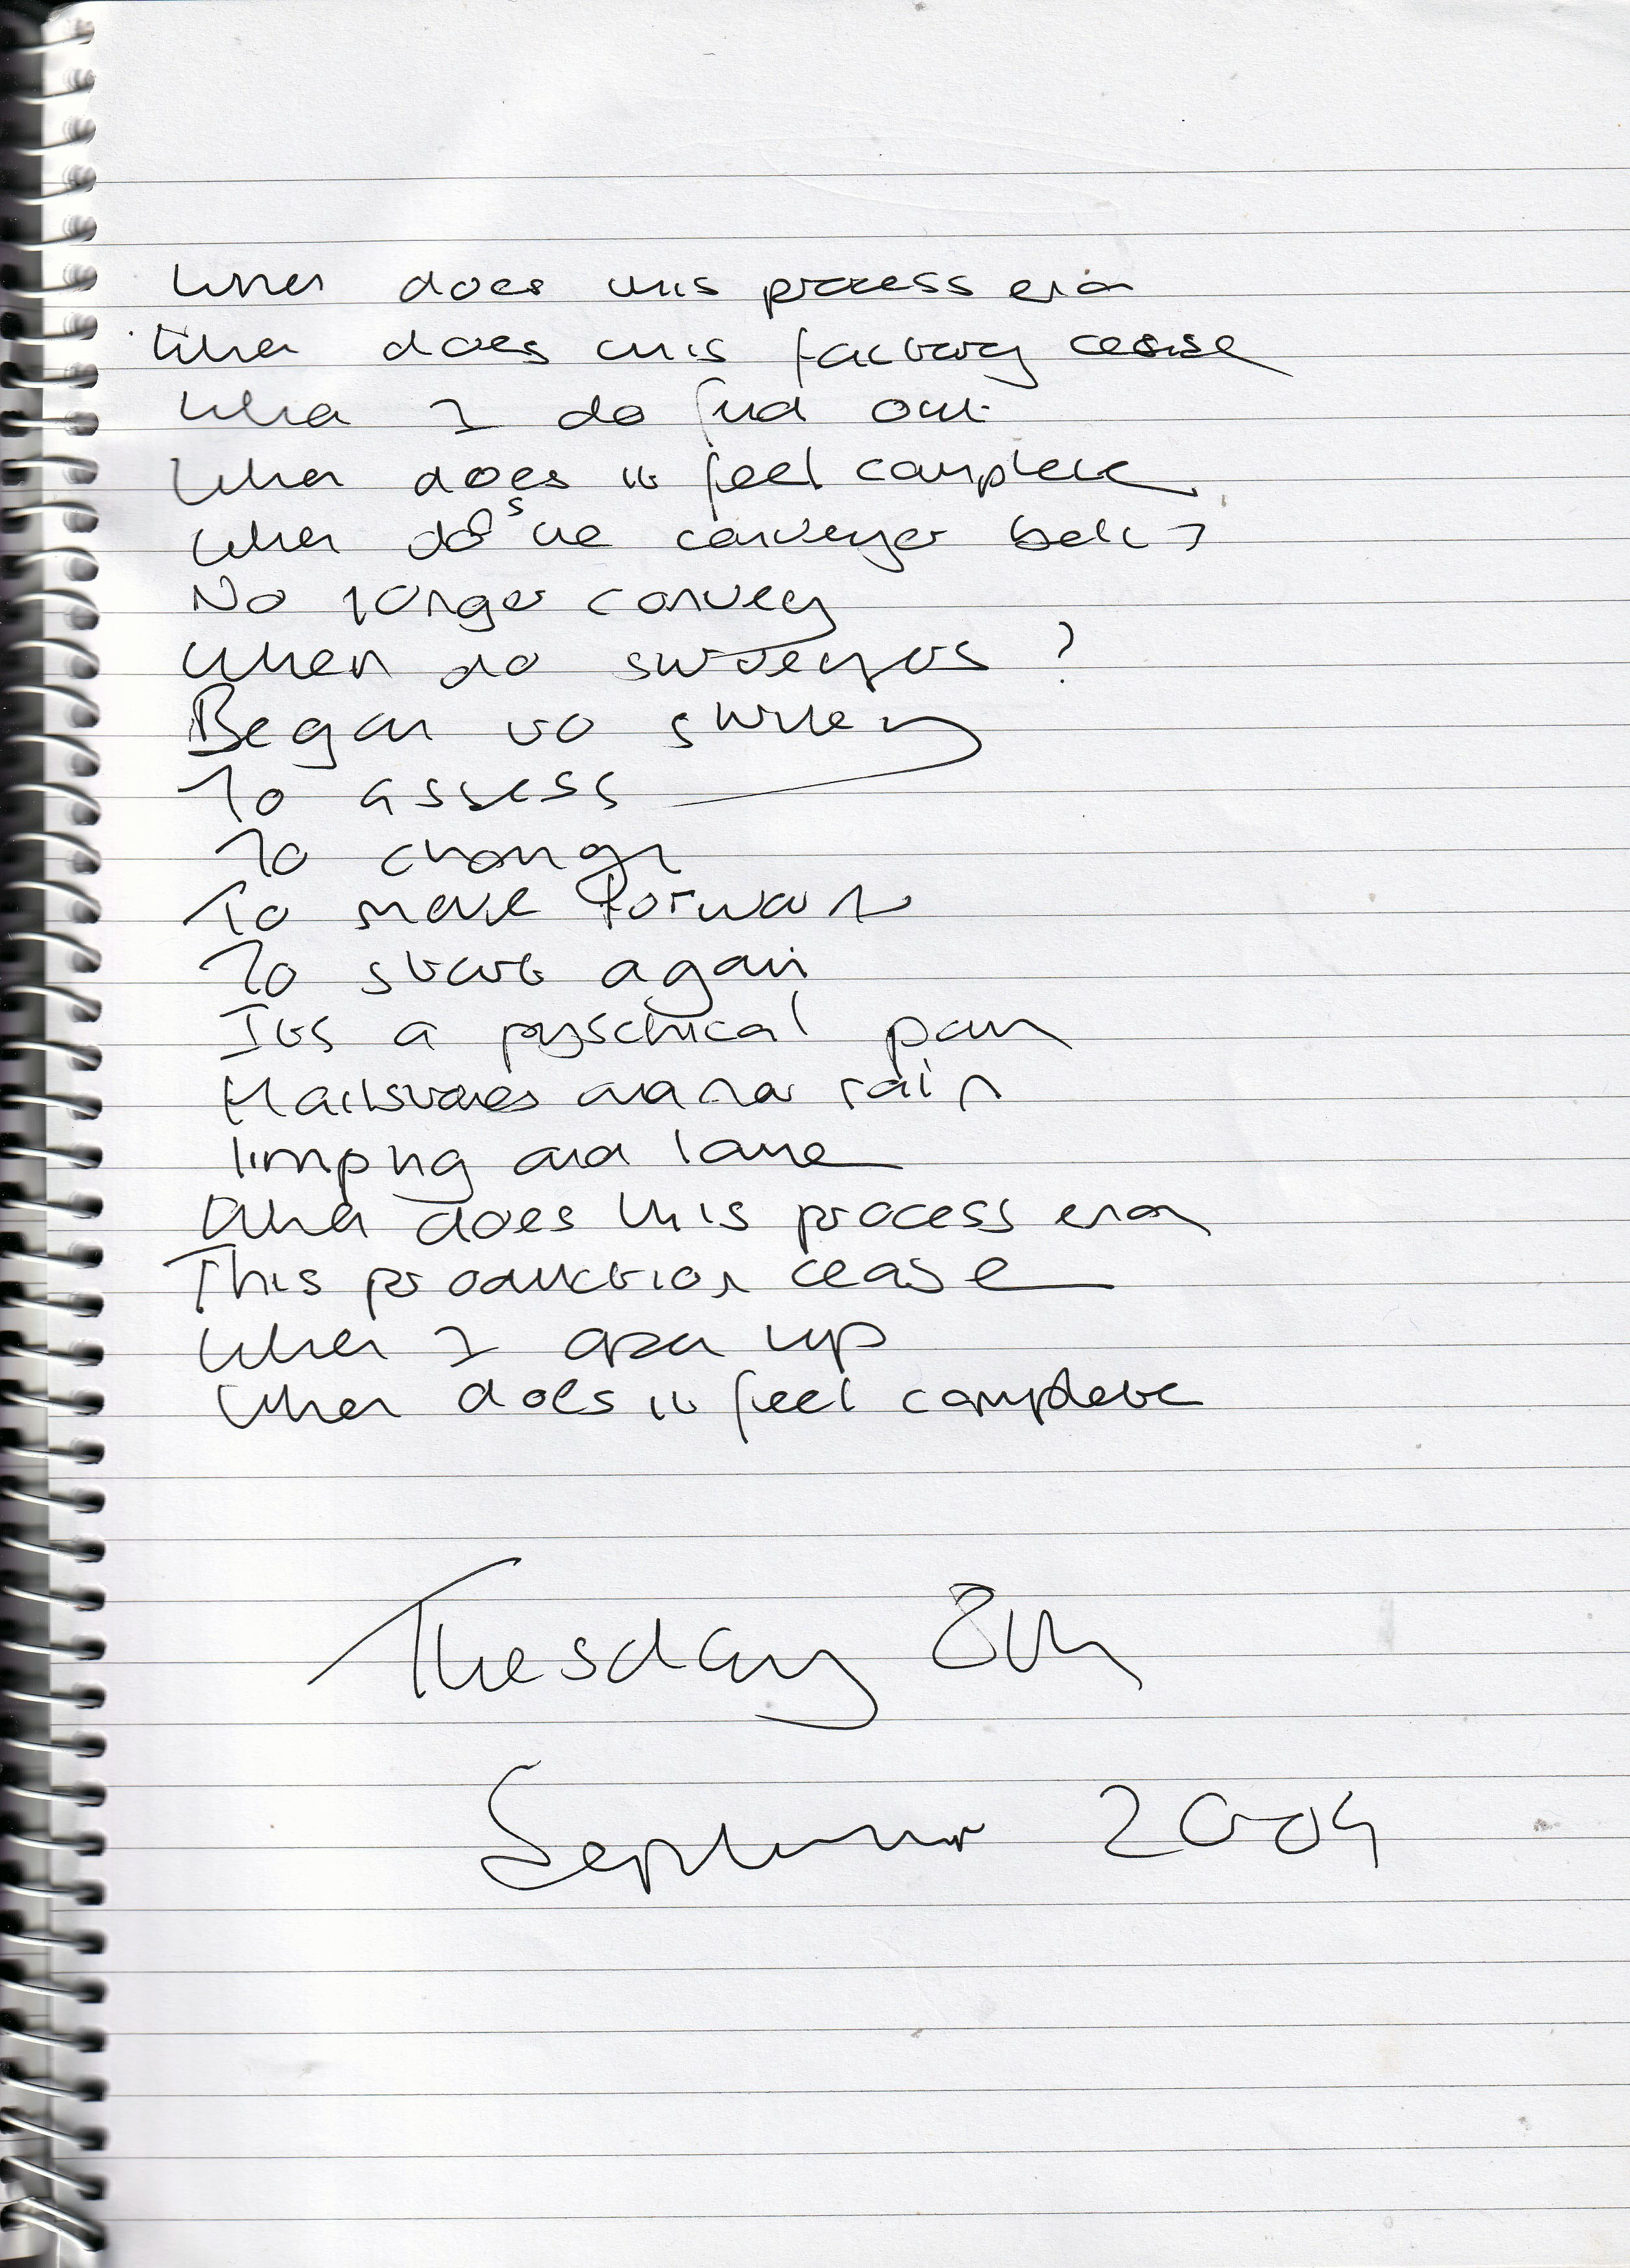 When does this process end
When does this factory cease
When I do find out
When does it feel complete
When does the conveyer belt ?
No longer convey
When do surveyors ?
Began to survey
To assess
To change
To move forward
To start again
Its a pyschical pain
Hailstones and rain
limping and lame
When does this process end
This production cease
When I open up
When does it feel complete
Tuesday 8th
September 2004